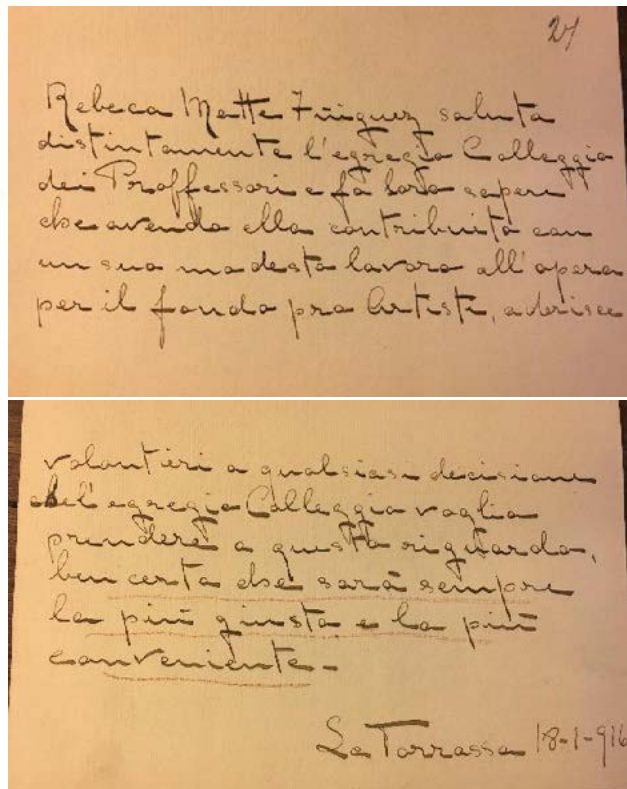 21
Rebeca Matte Iñiguez saluta
distintamente l'egregio Colleggio
dei Proffessori e fà loro sapere
che avendo ella contribuito con
un suo modesto lavoro all'opera
per il fondo pro Artisti, aderisce
volontieri a qualsiasi decisione
che l'egregio Colleggio voglia
prendere a questo riguardo,
ben certa che sarà sempre
la più giusta e la più
conveniente -
La Torrossa 18-1-916